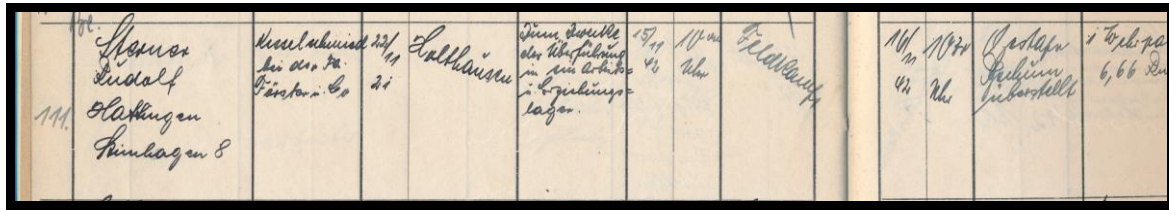 111.
Sterner
Rudolf
Hattingen
Steinhagen 8
Kesselschmied
bei der Fa.
Förster u. Co
22/11
21
Holthausen
Zum Zwecke
der Überführung
in ein Arbeits-
u. Erziehungs-
lager.
15/11
42
10 00
Uhr
Feldkamp
16/11
42
10 30
Uhr
Gestapo
Bochum
überstellt
6,66